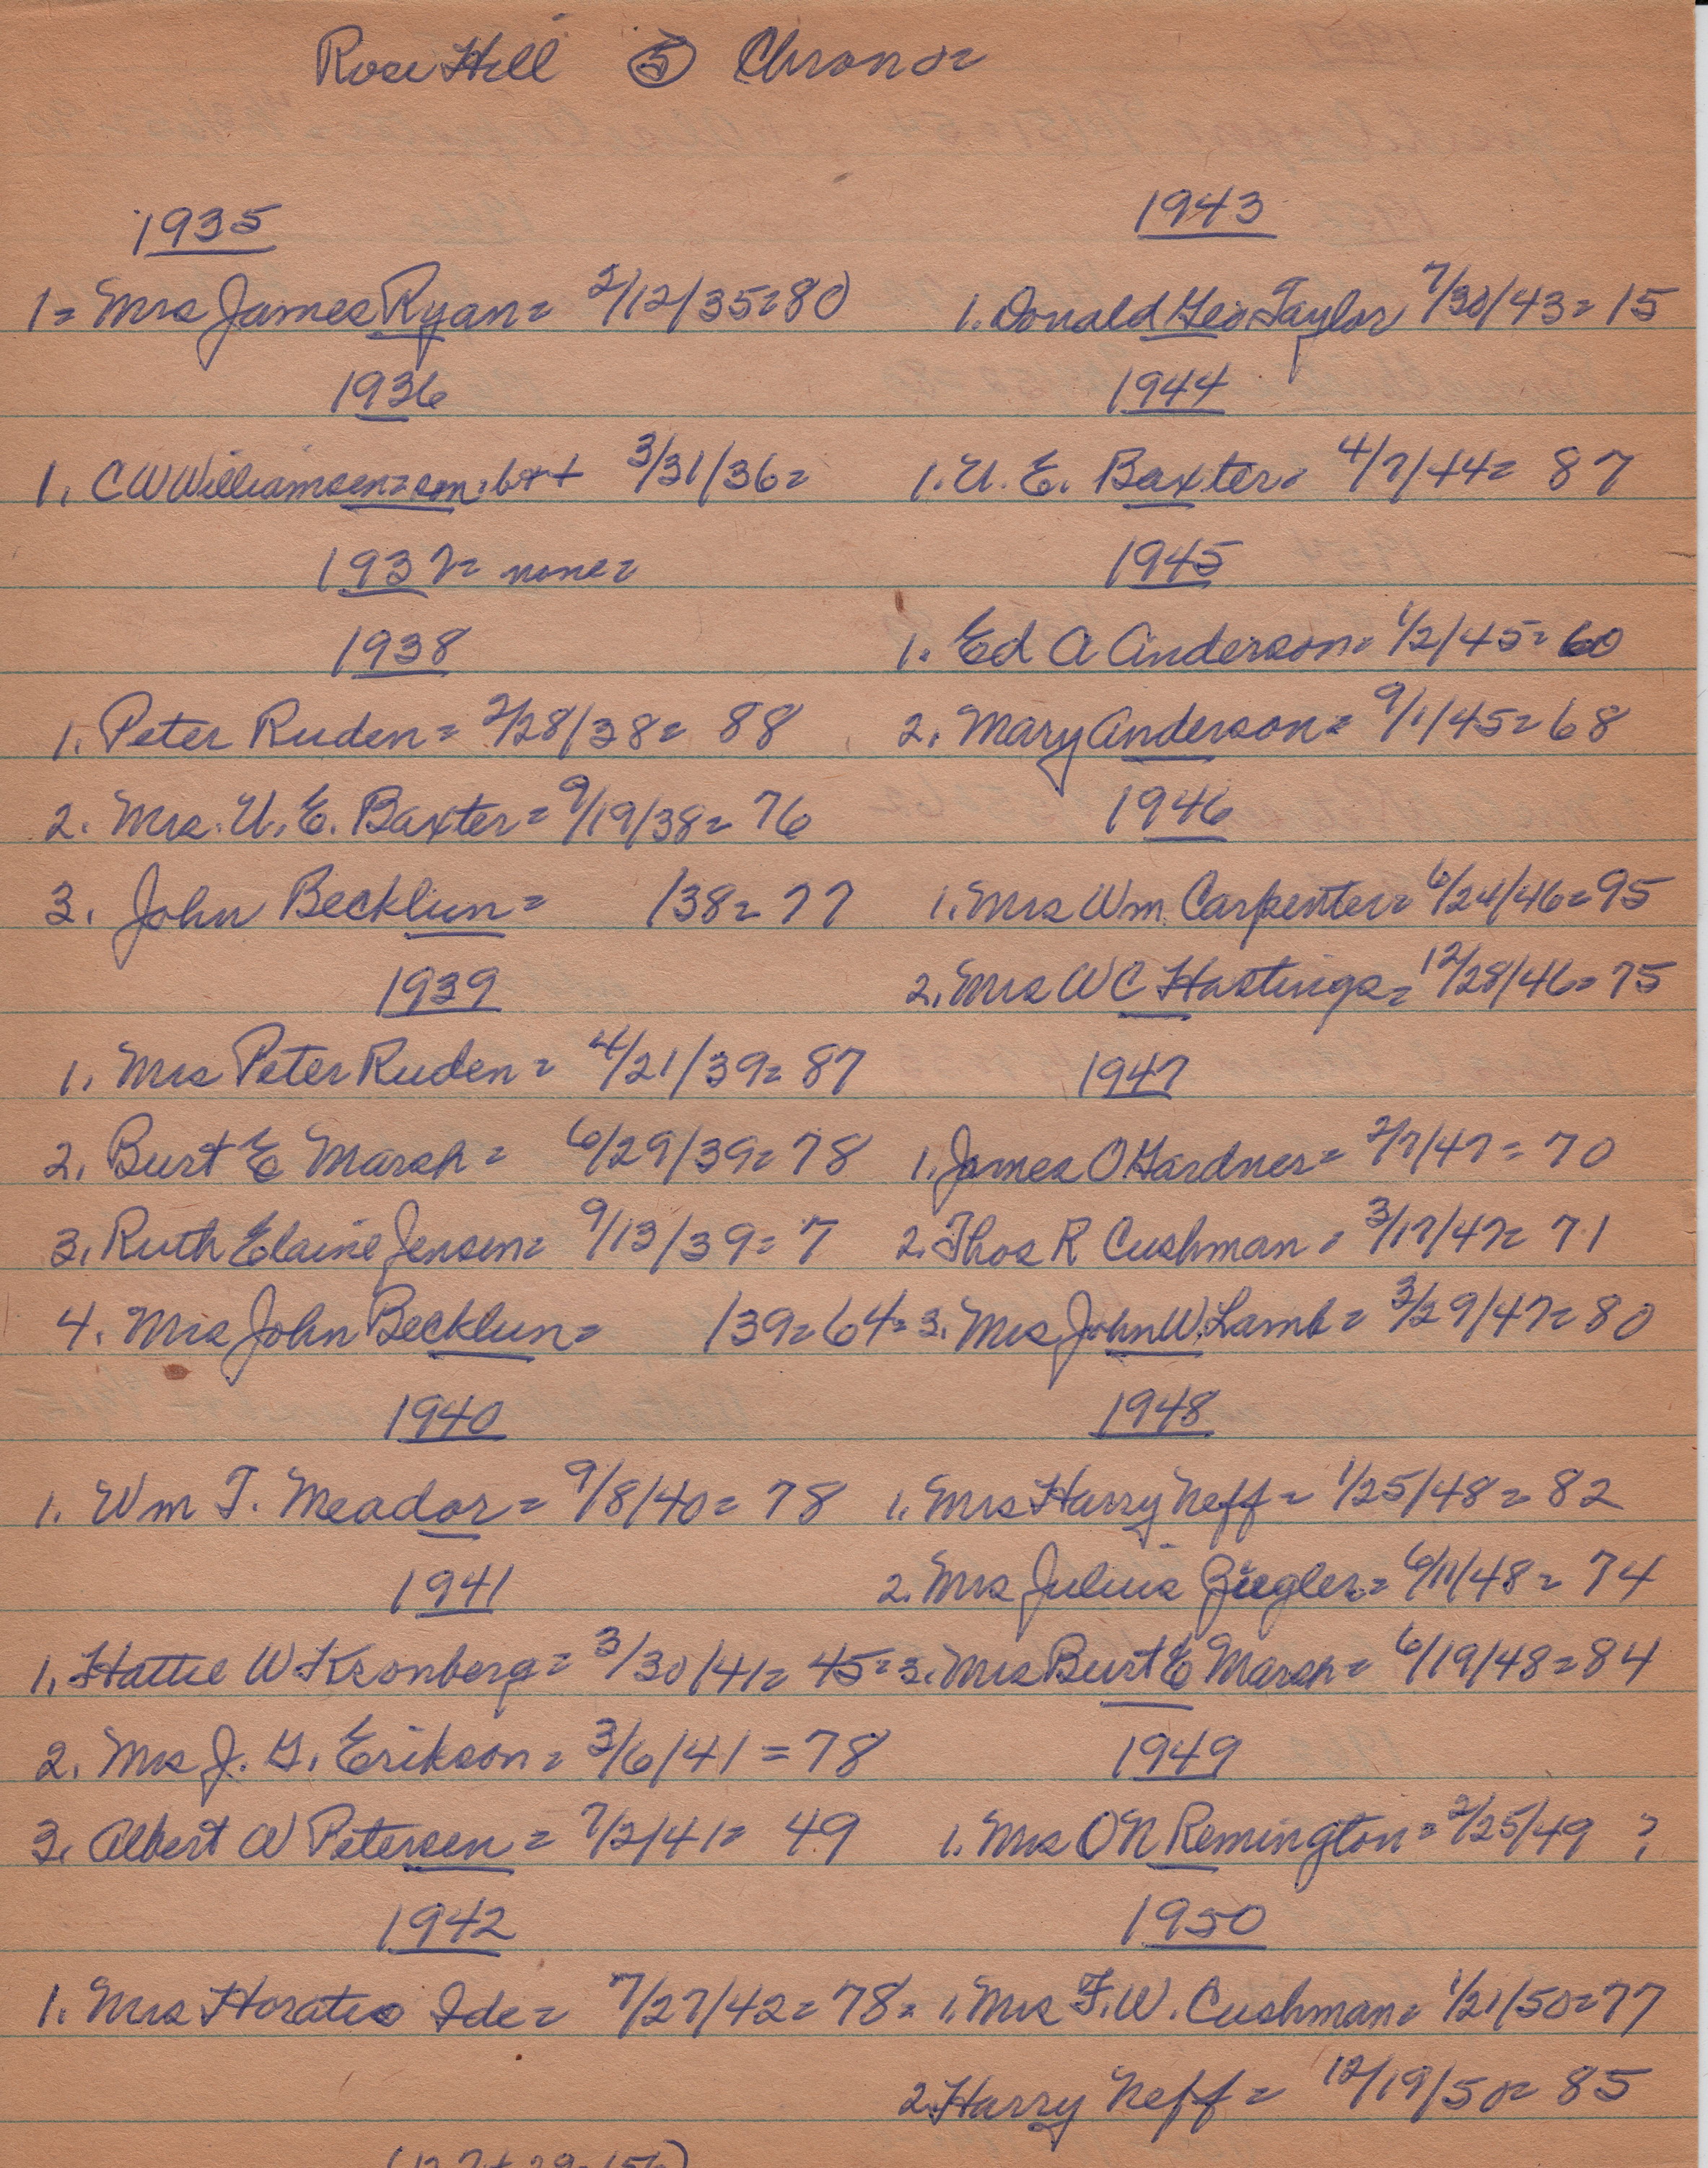 Rose Hill ⑤ Chronor
1935
1= Mrs James Ryan= 2/12/35=80
1936
1. C W Williamsen=son, b++ 3/31/36=
1937= none=
1938
1. Peter Ruden= 2/28/38= 88
2. Mrs. U. E. Baxter= 9/19/38= 76
3. John Becklun= /38= 77
1939
1. Mrs Peter Ruden= 4/21/39= 87
2. Burt E Marsh= 6/29/39= 78
3. Ruth Elaine Jensen= 9/13/39= 7
4. Mrs John Becklun= /39=64=
1940
1. Wm T. Meador= 9/8/40= 78
1941
1. Hattie W Kronberg= 3/30/41= 45=
2. Mrs J. G. Erikson= 3/6/41=78
3. Albert W Petersen= 7/2/41= 49
1942
1. Mrs Horatio Ide= 7/27/42=78=
1943
1. Donald Geo Taylor 7/30/43=15
1944
1. U. E. Baxter= 4/7/44= 87
1945
1. Ed A Anderson= 1/2/45=60
2. Mary Anderson= 9/1/45=68
1946
1. Mrs Wm. Carpenter= 6/24/46=95
2. Mrs W C Hastings= 12/28/46=75
1947
1. James O Gardner= 2/7/47=70
2. Thos R Cushman= 3/17/47= 71
3. Mrs John W. Lamb= 3/29/47=80
1948
1. Mrs Harry Neff= 1/25/48=82
2. Mrs Julius Ziegler= 6/11/48=74
3. Mrs Burt E Marsh= 6/19/48=84
1949
1. Mrs O N Remington=2/25/49 ?
1950
1. Mrs F. W. Cushman= 1/21/50=77
2. Harry Neff= 12/19/50= 85
(127+29=156)